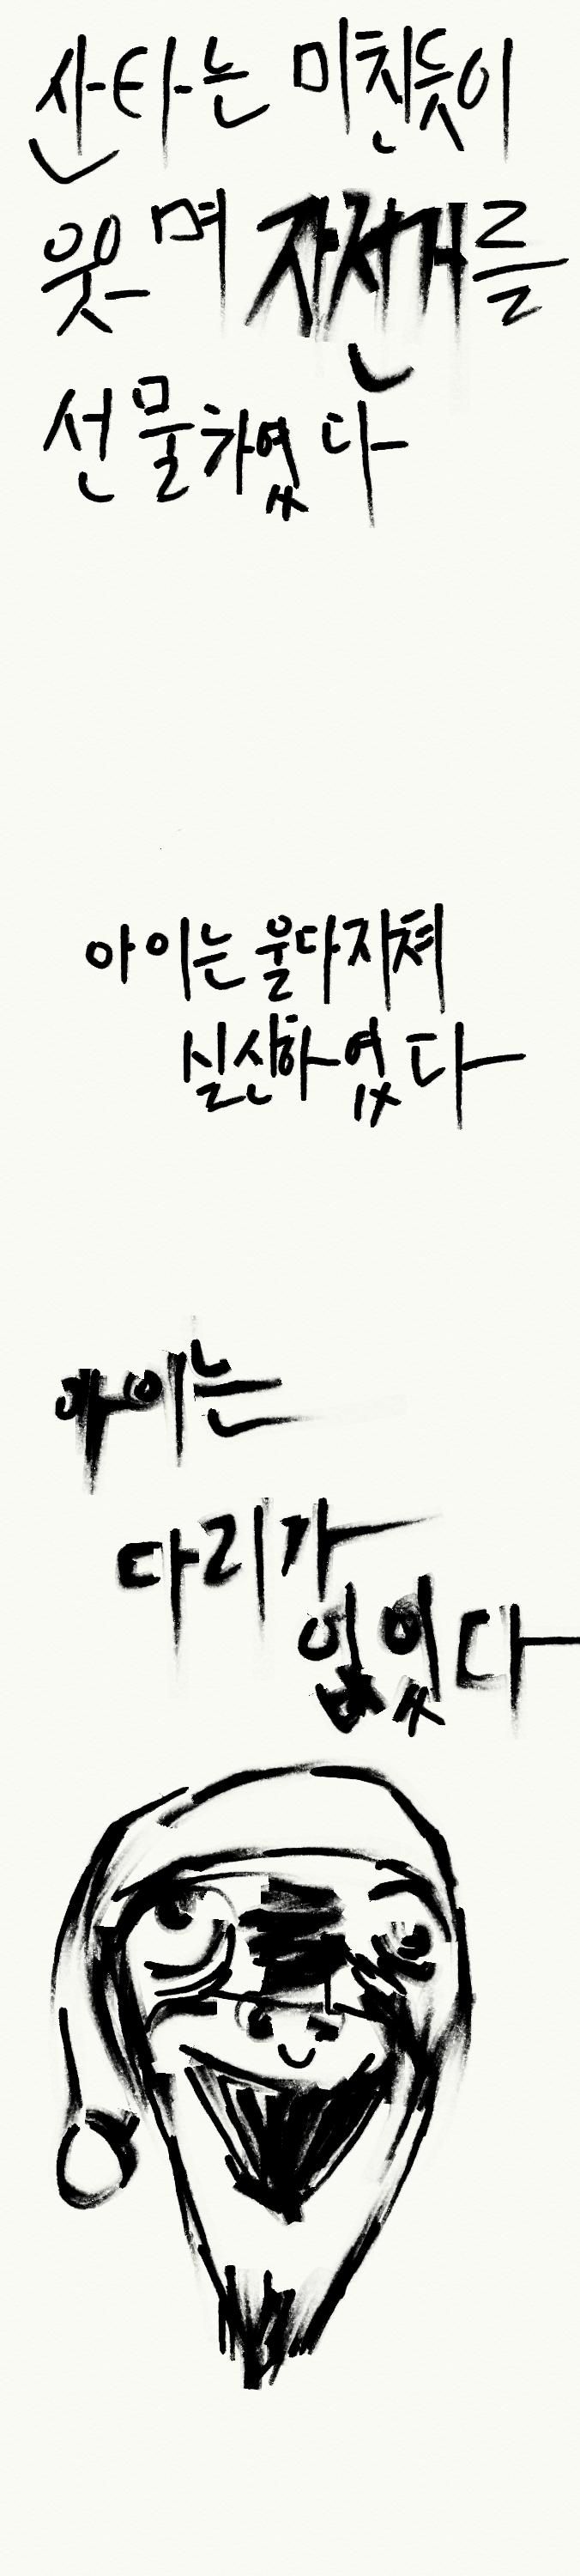 산타는 미친듯이
웃며 자전거를
선물하였다
아이는 울다지쳐
실신하였다
아이는
다리가
없었다